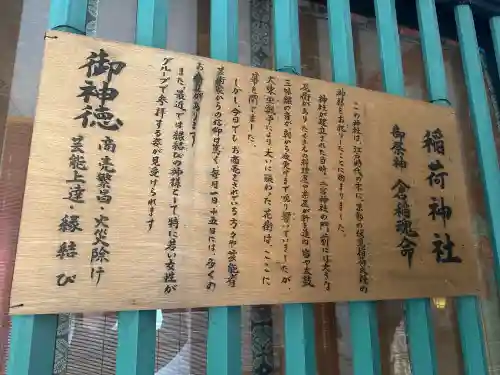 稲荷神社
御祭神 倉稲魂命
この神社は、江戸時代の末に、京都の伏見稲荷大社の
神様をお祀りしたことに始まりました。
神社が建立された当時、二宮神社の門前には大きな
花街がありたくさんの料理屋や茶屋が軒を連ね、笛や太鼓
三味線の音が朝から夜更けまで鳴り響いていましたが、
大東亜戦争により大いに賑わった花街は、ここに
幕を閉じました。
しかし、今日でもお商売をされている方々や芸能者
芸術家からの信仰は篤く、毎月一日、十五日には、多くの
お
があります。
また、最近では縁結びの神様として特に若い女性が
グループで参拝する姿が見受けられます
御神徳
商売繁昌・火災除け
芸能上達・縁結び